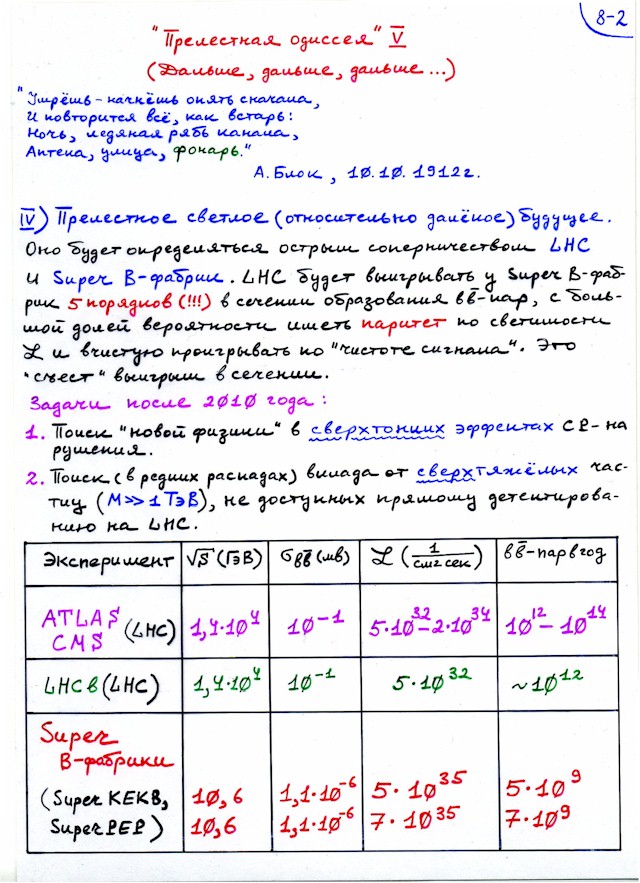 8-2
"Прелестная одиссея" V
(Дальше, дальше, дальше...)
"Умрёшь - начнёшь опять сначала,
И повторится всё, как встарь:
Ночь, ледяная рябь канала,
Аптека, улица, фонарь."
А. Блок, 10.10.1912г.
IV) Прелестное светлое (относительно далёкое) будущее.
Оно будет определяться острым соперничеством LHC
и Super B-фабрик. LHC будет выигрывать у Super B-фаб-
рик 5 порядков (!!!) в сечении образования bb̄-пар, с боль-
шой долей вероятности иметь паритет по светимости
ℒ и вчистую проигрывать по "чистоте сигнала". Это
"съест" выигрыш в сечении.
Задачи после 2010 года:
1. Поиск "новой физики" в сверхтонких эффектах CP-на
рушения.
2. Поиск (в редких распадах) вклада от сверхтяжёлых час-
тиц (M>>1ТэВ), не доступных прямому детектирова-
нию на LHC.
Эксперимент √S (ГэВ) σbb̄ (мб) ℒ (1/см² сек) bb̄-пар в год
ATLAS CMS (LHC) 1,4·10⁴ 10⁻¹ 5·10³²–2·10³⁴ 10¹²–10¹⁴
LHCb (LHC) 1,4·10⁴ 10⁻¹ 5·10³² ~10¹²
Super
B-фабрики
(Super KEKB, 10,6 1,1·10⁻⁶ 5·10³⁵ 5·10⁹
Super PEP) 10,6 1,1·10⁻⁶ 7·10³⁵ 7·10⁹